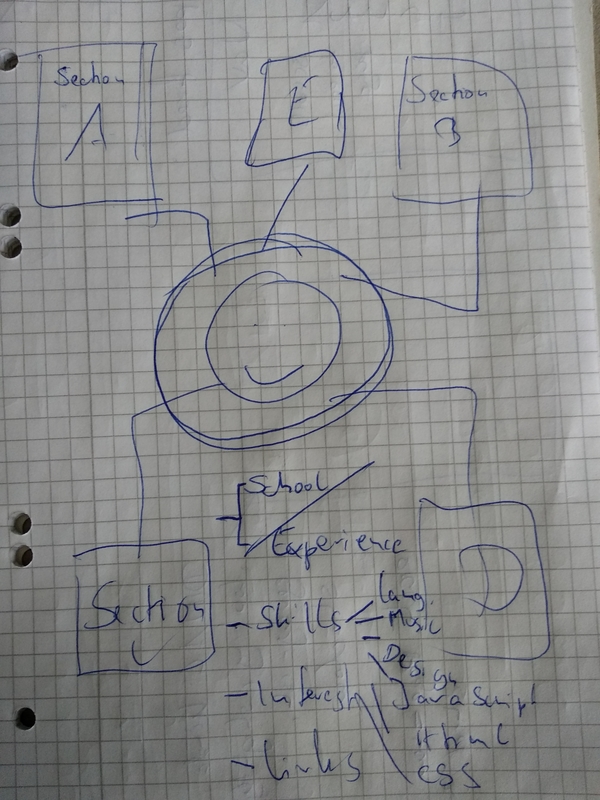 Section
A
E
Section
B
School
Experience
Section
C
D
- Skills
Lang.
Music
Design
- Interests
JavaScript
Html
CSS
- Links